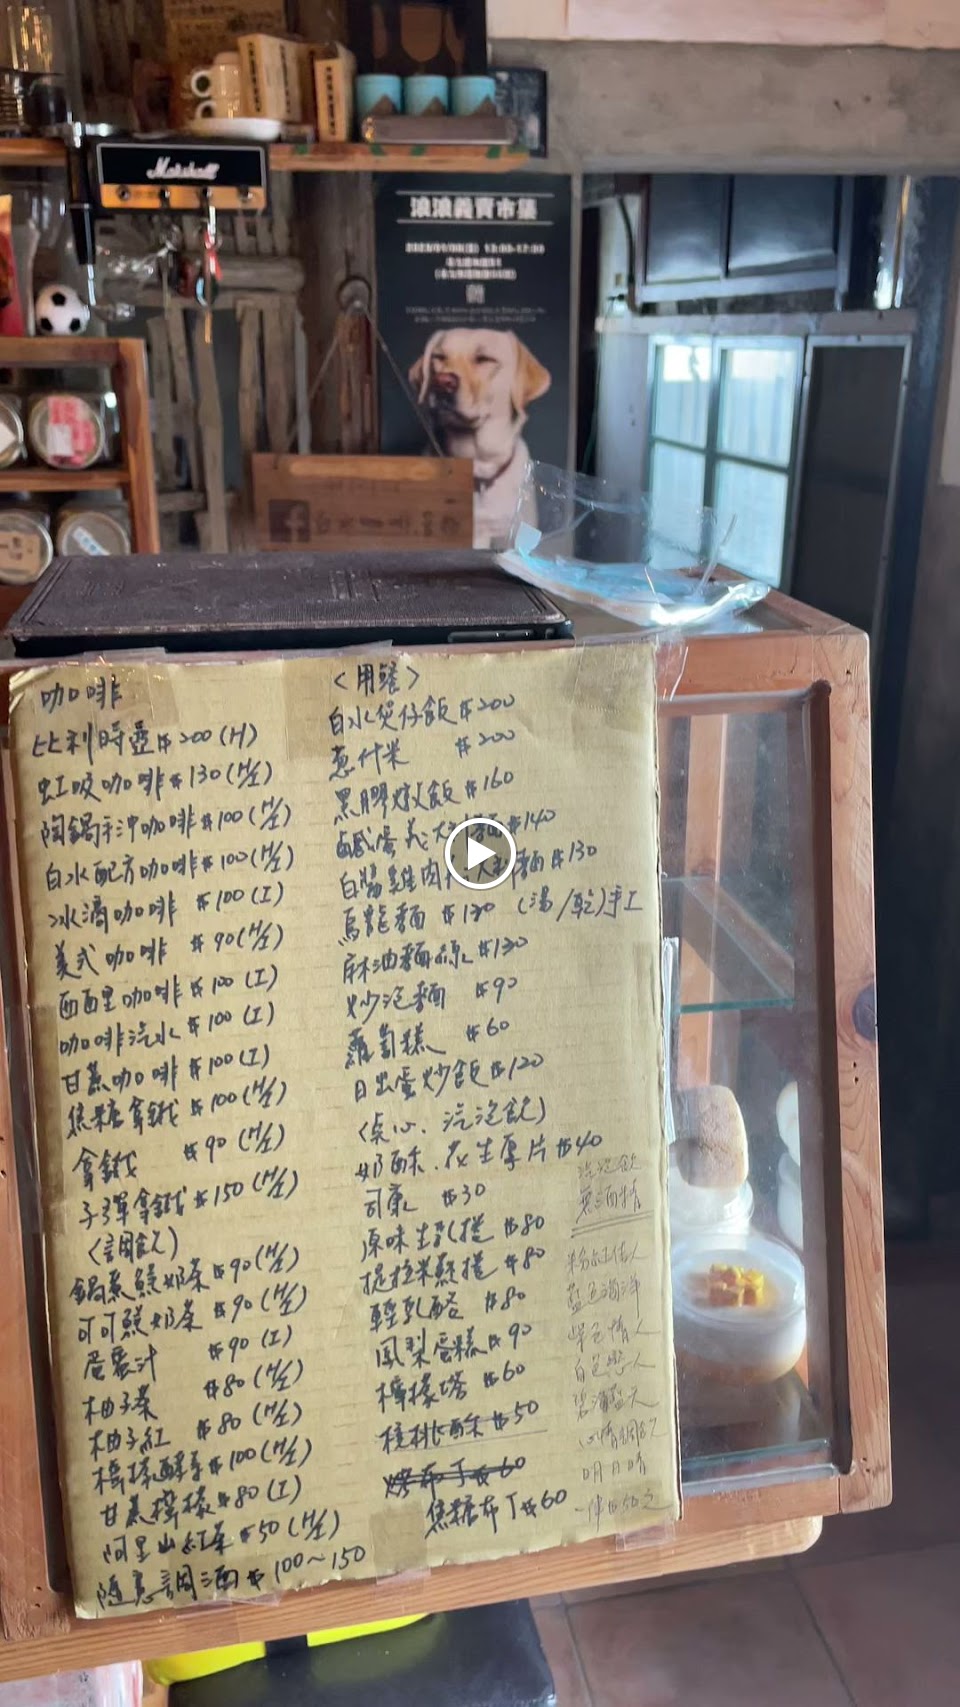 Marshall
浪浪義賣市集
咖啡
比利時壺$200(H)
虹吸咖啡$130(H/I)
陶鍋手沖咖啡$100(H/I)
白水配方咖啡$100(H/I)
冰滴咖啡 $100(I)
美式咖啡 $90(H/I)
西西里咖啡$100(I)
咖啡汽水$100(I)
甘蔗咖啡$100(I)
焦糖拿鐵$100(H/I)
拿鐵 $90(H/I)
子彈拿鐵$150(H/I)
〈調飲〉
鍋煮鮮奶茶$90(H/I)
可可鮮奶茶$90(H/I)
蛋蜜汁 $90(I)
柚子茶 $80(H/I)
柚子紅 $80(H/I)
檸檬酵素$100(H/I)
甘蔗檸檬$80(I)
阿里山紅茶$50(H/I)
隨意調酒$100~150
〈用餐〉
白水煲仔飯$200
蔥仟米 $200
黑膠燉飯$160
鹹蛋義大利麵$140
白醬雞肉義大利麵$130
烏龍麵 $130 (湯/乾)手工
麻油麵線$130
炒泡麵 $90
蘿蔔糕 $60
日出蛋炒飯$120
〈点心、汽泡飲〉
奶酥、花生厚片$40
司康 $30
原味生乳捲 $80
提拉米蘇捲 $80
輕乳酪 $80
鳳梨蛋糕$90
檸檬塔 $60
核桃酥$50
烤布丁$60
焦糖布丁$60
汽泡飲
無酒精
粉紅佳人
藍色海洋
紫色情人
白色戀人
碧海藍天
心情調飲
明日晴
一律$50元